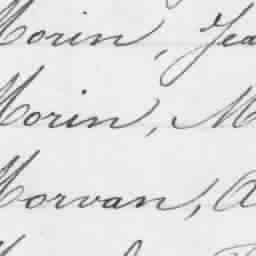 Morin, Jea
Morin, M
Morvan, A